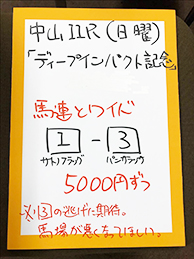 中山11R(日曜)
「ディープインパクト記念」
馬連とワイド
1-3
サトノフラッグ パンサラッサ
5000円ずつ
※3の逃げに期待。
馬場が悪くなってほしい。